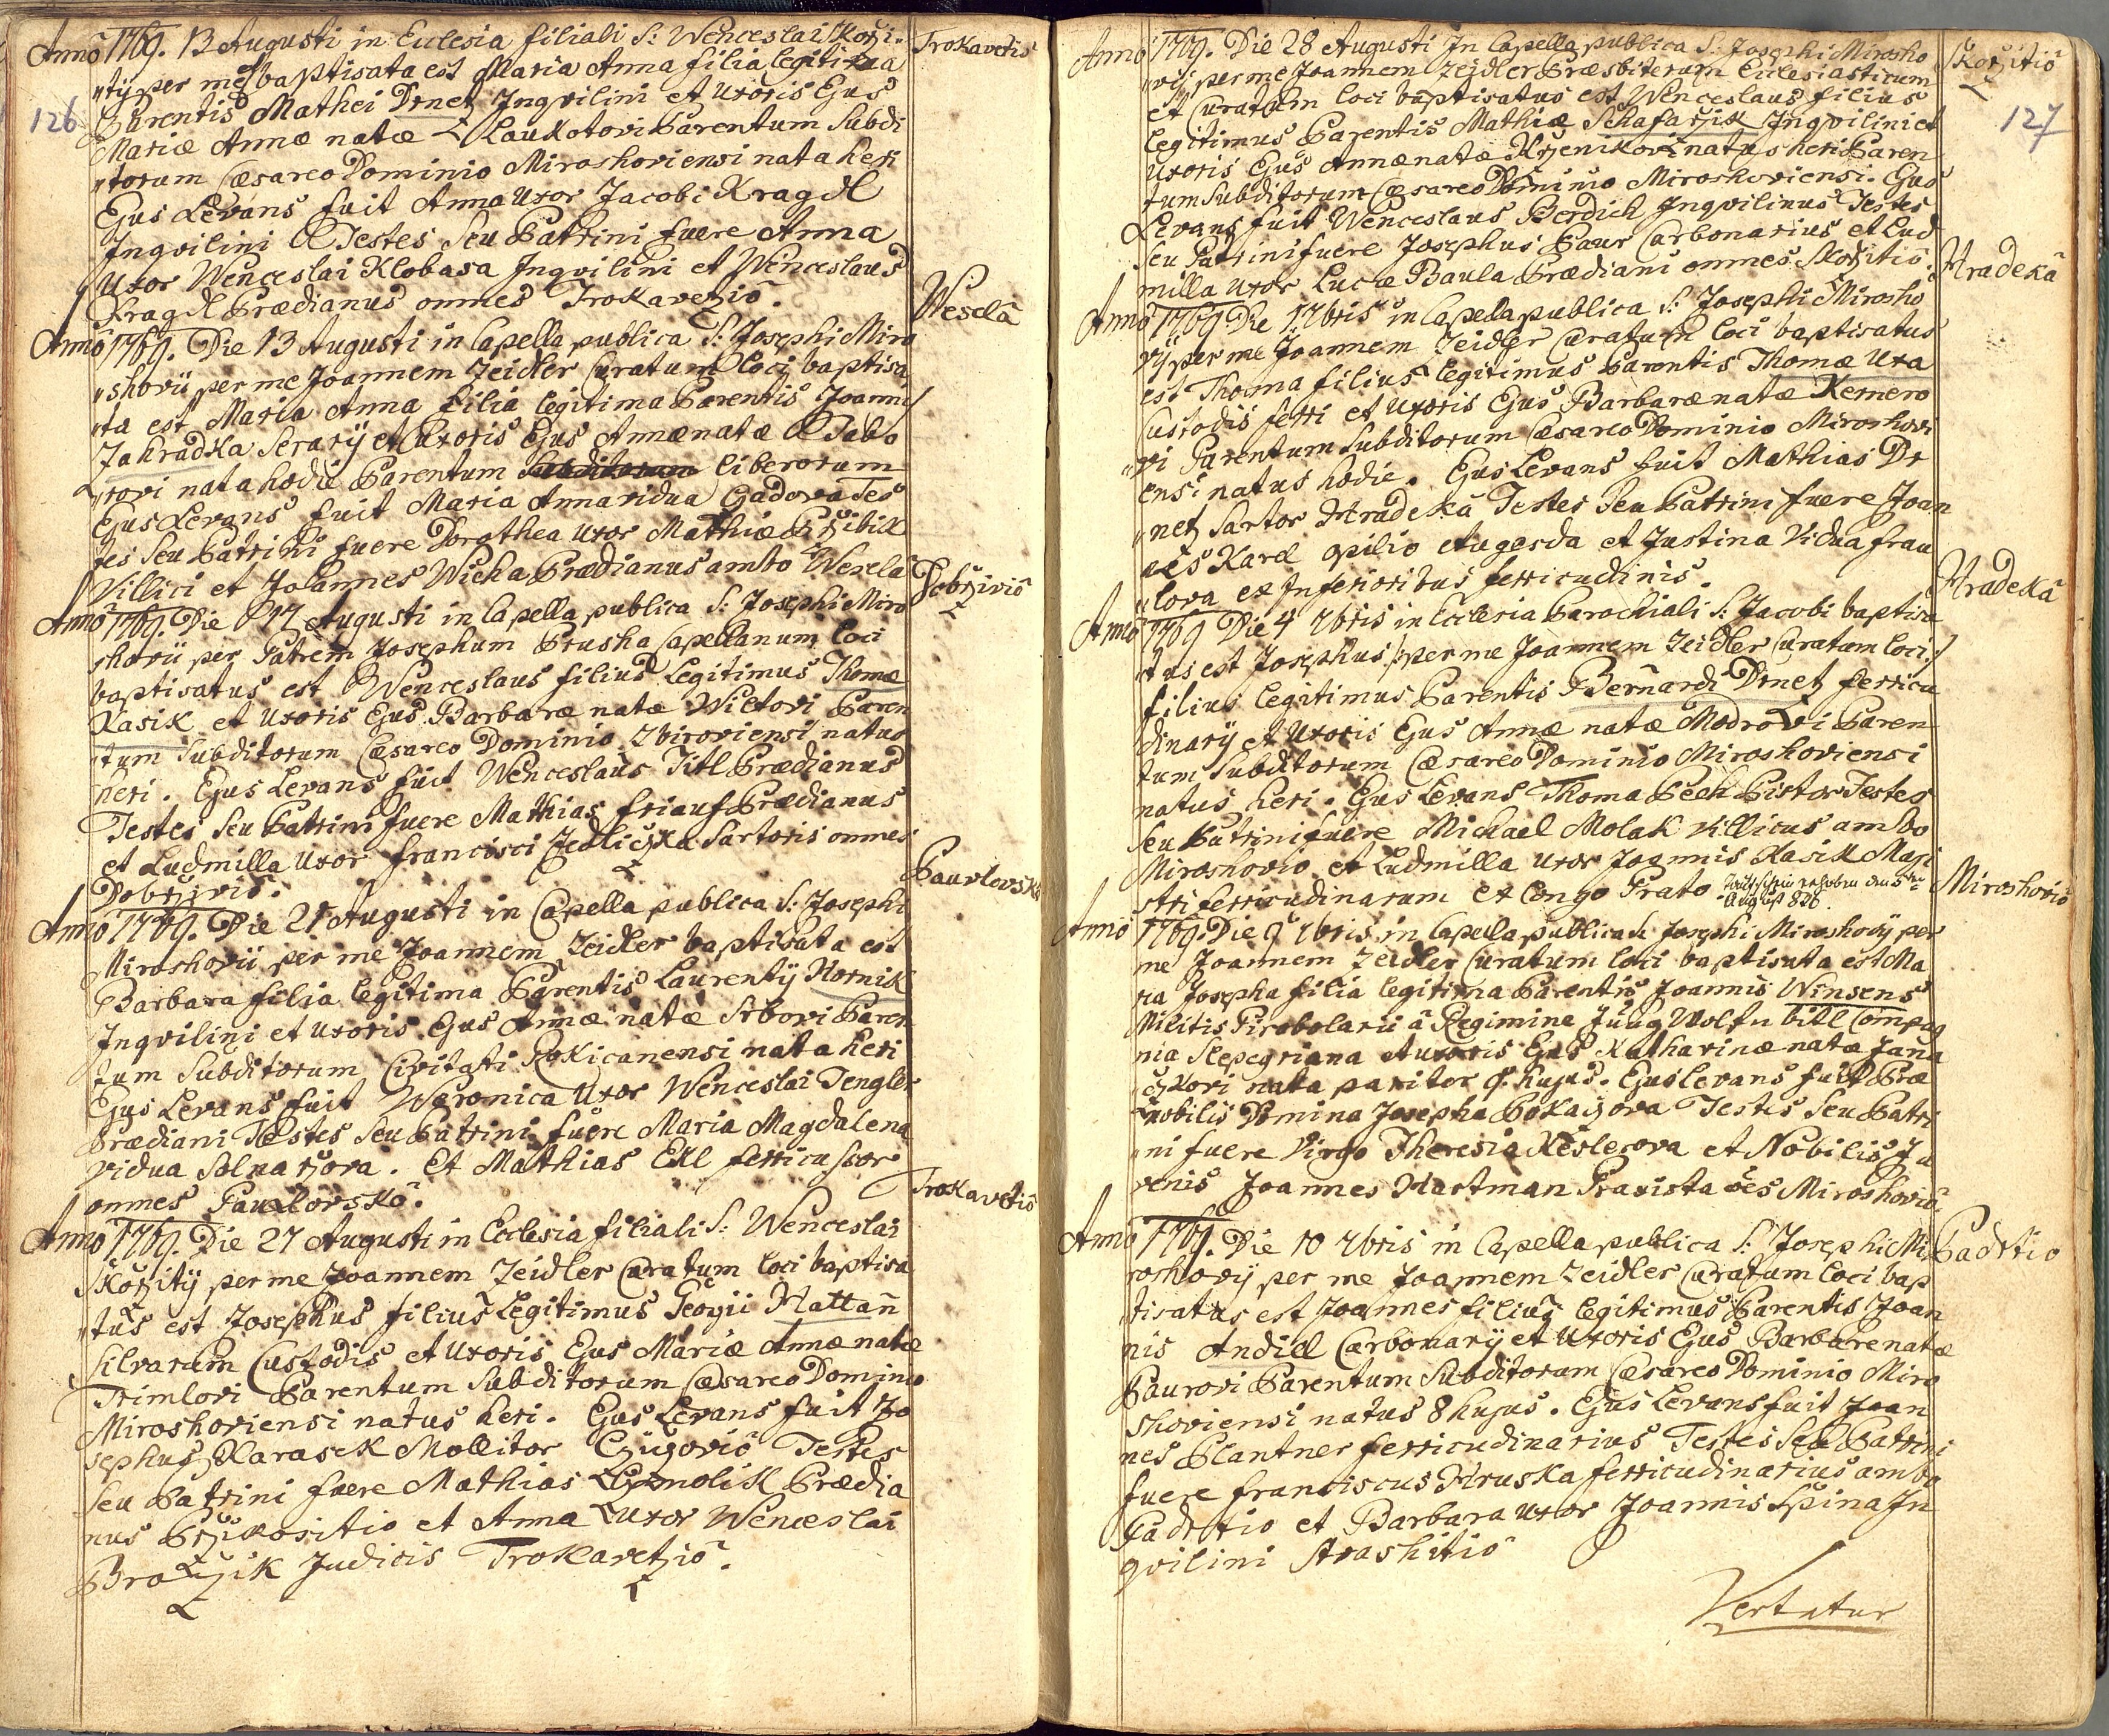 Anno 1769. 13 Augusti in Ecclesia filiali S: Wenceslai Skorži-
"tÿ per me baptisata est Maria Anna filia legitima
126
Parentis Mathei Drnetz Inqvilini et Uxoris Ejus
Mariæ Annæ natæ Laukotovi Parentum Subdi
"torum Cæsareo Dominio Miroshoviensi nata heri
Ejus Levans fuit Anna Uxor Jacobi Kragdl
Inqvilini Testes Seu Patrini fuere Anna
Uxor Wenceslai Klobasa Inqvilini et Wenceslaus
Kragdl Prædianus omnes Trokavetziō.
Trokavetiō
Anno 1769. Die 13 Augusti in Capella publica S: Josephi Miro
"shovii per me Joannem Zeidler Curatum loci baptisa
"ta est Maria Anna filia legitima Parentis Joanni
Zahradka Serarÿ et Uxoris Ejus Annæ natæ Tabo
"rovi nata hodie Parentum Subditorum liberorum
Ejus Levans fuit Maria Anna vidua Gadova Tes
tes Seu Patrini fuere Dorothea Uxor Mathiæ Pržibik
Villici et Joannes Wicha Prædianus ambo Wesela
Weselā
Anno 1769. Die 17 Augusti in Capella publica S: Josephi Miro
shovii per Patrem Josephum Prusha Capellanum loci
baptisatus est Wenceslaus filius Legitimus Thomæ
Kasik et Uxoris Ejus Barbaræ natæ Wictovi Paren
"tum Subditorum Cæsareo Dominio Zbiroviensi natus
heri. Ejus Levans fuit Wenceslaus Titl Prædianus
Testes Seu Patrini fuere Mathias Friauf Prædianus
et Ludmilla Uxor Francisci Jedlicžka Sartoris omnes
Dobrživiō.
Dobrživiō
Anno 1769. Die 21 Augusti in Capella publica S: Josephi
Miroshovii per me Joannem Zeidler baptisata est
Barbara filia legitima Parentis Laurentÿ Hornik
Inqvilini et Uxoris Ejus Annæ natæ Srbovi Paren
tum Subditorum Civitati Rokicanensi nata heri
Ejus Levans fuit Weronica Uxor Wenceslai Tengler
Prædiani Testes Seu Patrini fuere Maria Magdalena
vidua Solnaržova. Et Mathias Ekl ferricussor
omnes Pauzlovskō.
Paurlovskō
Anno 1769. Die 27 Augusti in Ecclesia filiali S: Wenceslai
Skoržitÿ per me Joannem Zeidler Curatum loci baptisa
"tus est Josephus filius Legitimus Georgii Hattan
Silvarum Custodis et Uxoris Ejus Mariæ Annæ natæ
Trimlovi Parentum Subditorum Cæsareo Dominio
Miroshoviensi natus heri. Ejus Levans fuit Jo
sephus Karasek Mollitor Testes
Seu Patrini fuere Mathias Prædia
nus Pržikositio et Anna Uxor Wenceslai
Brožik Judicis Trokavetziō.
Trokavetiō
Anno 1769. Die 28 Augusti In Capella publica S: Josephi Mirosho
"vÿ per me Joannem Zejdler Præsbiterum Ecclesiasticum
et Curatum loci baptisatus est Wenceslaus filius
legitimus Parentis Mathiæ Schafaržik Inqvilini et
Uxoris Ejus Annæ natæ Krženikovi natus heri Paren
tum Subditorum Cæsareo Dominio Miroshoviensi. Ejus
Levans fuit Wenceslaus Berdich Inqvilinus Testes
Seu Patrini fuere Josephus Paur Carbonarius et Lud
milla Uxor Lucæ Baula Prædiani omnes Skoržitiō.
Skoržitiō
127
Anno 1769 Die 1 7bris in Capella publica S: Josephi Mirosho
vÿ per me Joannem Zeidler Curatum loci baptisatus
est Thoma filius legitimus Parentis Thomæ Uxa
Custodis ferri et Uxoris Ejus Barbaræ natæ Kernero
"vi Parentum Subditorum Cæsareo Dominio Miroshovi
ensi natus hodie. Ejus Levans fuit Mathias Dr
"netz Sartor Hradekā Testes Seu Patrini fuere Joan
nes Karel opilio Augezda et Justina Vidua Frau
"lova ex Inferioribus ferricudinis.
Hradekā
Anno 1769 Die 4 7bris in Ecclesia Parochiali S: Jacobi baptisa
"tus est Josephus /: per me Joannem Zeidler Curatum loci :/
filius legitimus Parentis Bernardi Drnetz ferricu
dinarÿ et Uxoris Ejus Annæ natæ Modrovi Paren
tum Subditorum Cæsareo Dominio Miroshoviensi
natus heri. Ejus Levans Thoma Pech Pistor Testes
Seu Patrini fuere Michael Molak Villicus ambo
Miroshoviō et Ludmilla Uxor Joannis Kasik Magi
stri ferricudinarum ex Longo Prato Taufschein erhoben den 5ten
August 826.
Hradekā
Anno 1769. Die 9 7bris in Capella publica S. Josephi Miroshovÿ per
me Joannem Zeidler Curatum loci baptisata est Ma
ria Josepha filia legitima Parentis Joannis Winsens
Militis Pirobolarii â Regimine Jung Wolfnbitl Compag
nia Slepegriana et Uxoris Ejus Katharinæ natæ Jana
"cžkovi nata pariter 9 hujus. Ejus Levans fuit Præ
nobilis Domina Josepha Pokaizova Testes Seu Patri
"ni fuere Virgo Theresia Keslerova et Nobilis Ju
venis Joannes Hartman Praxista oēs Miroshoviō.
Miroshoviō
Anno 1769. Die 10 7bris in Capella publica S: Josephi Mi
roshovÿ per me Joannem Zeidler Curatum loci bap
tisatus est Joannes filius legitimus Parentis Joan
nis Andiel Carbonarÿ et Uxoris Ejus Barbaræ natæ
Paurovi Parentum Subditorum Cæsareo Dominio Miro
shoviensi natus 8 hujus. Ejus Levans fuit Joan
nes Plantner ferricudinarius Testes Seu Patrini
fuere Franciscus Hruska ferricudinarius ambo
Padrtio et Barbara Uxor Joannis Spina In
qvilini Strashitiō
Padrtio
Vertatur